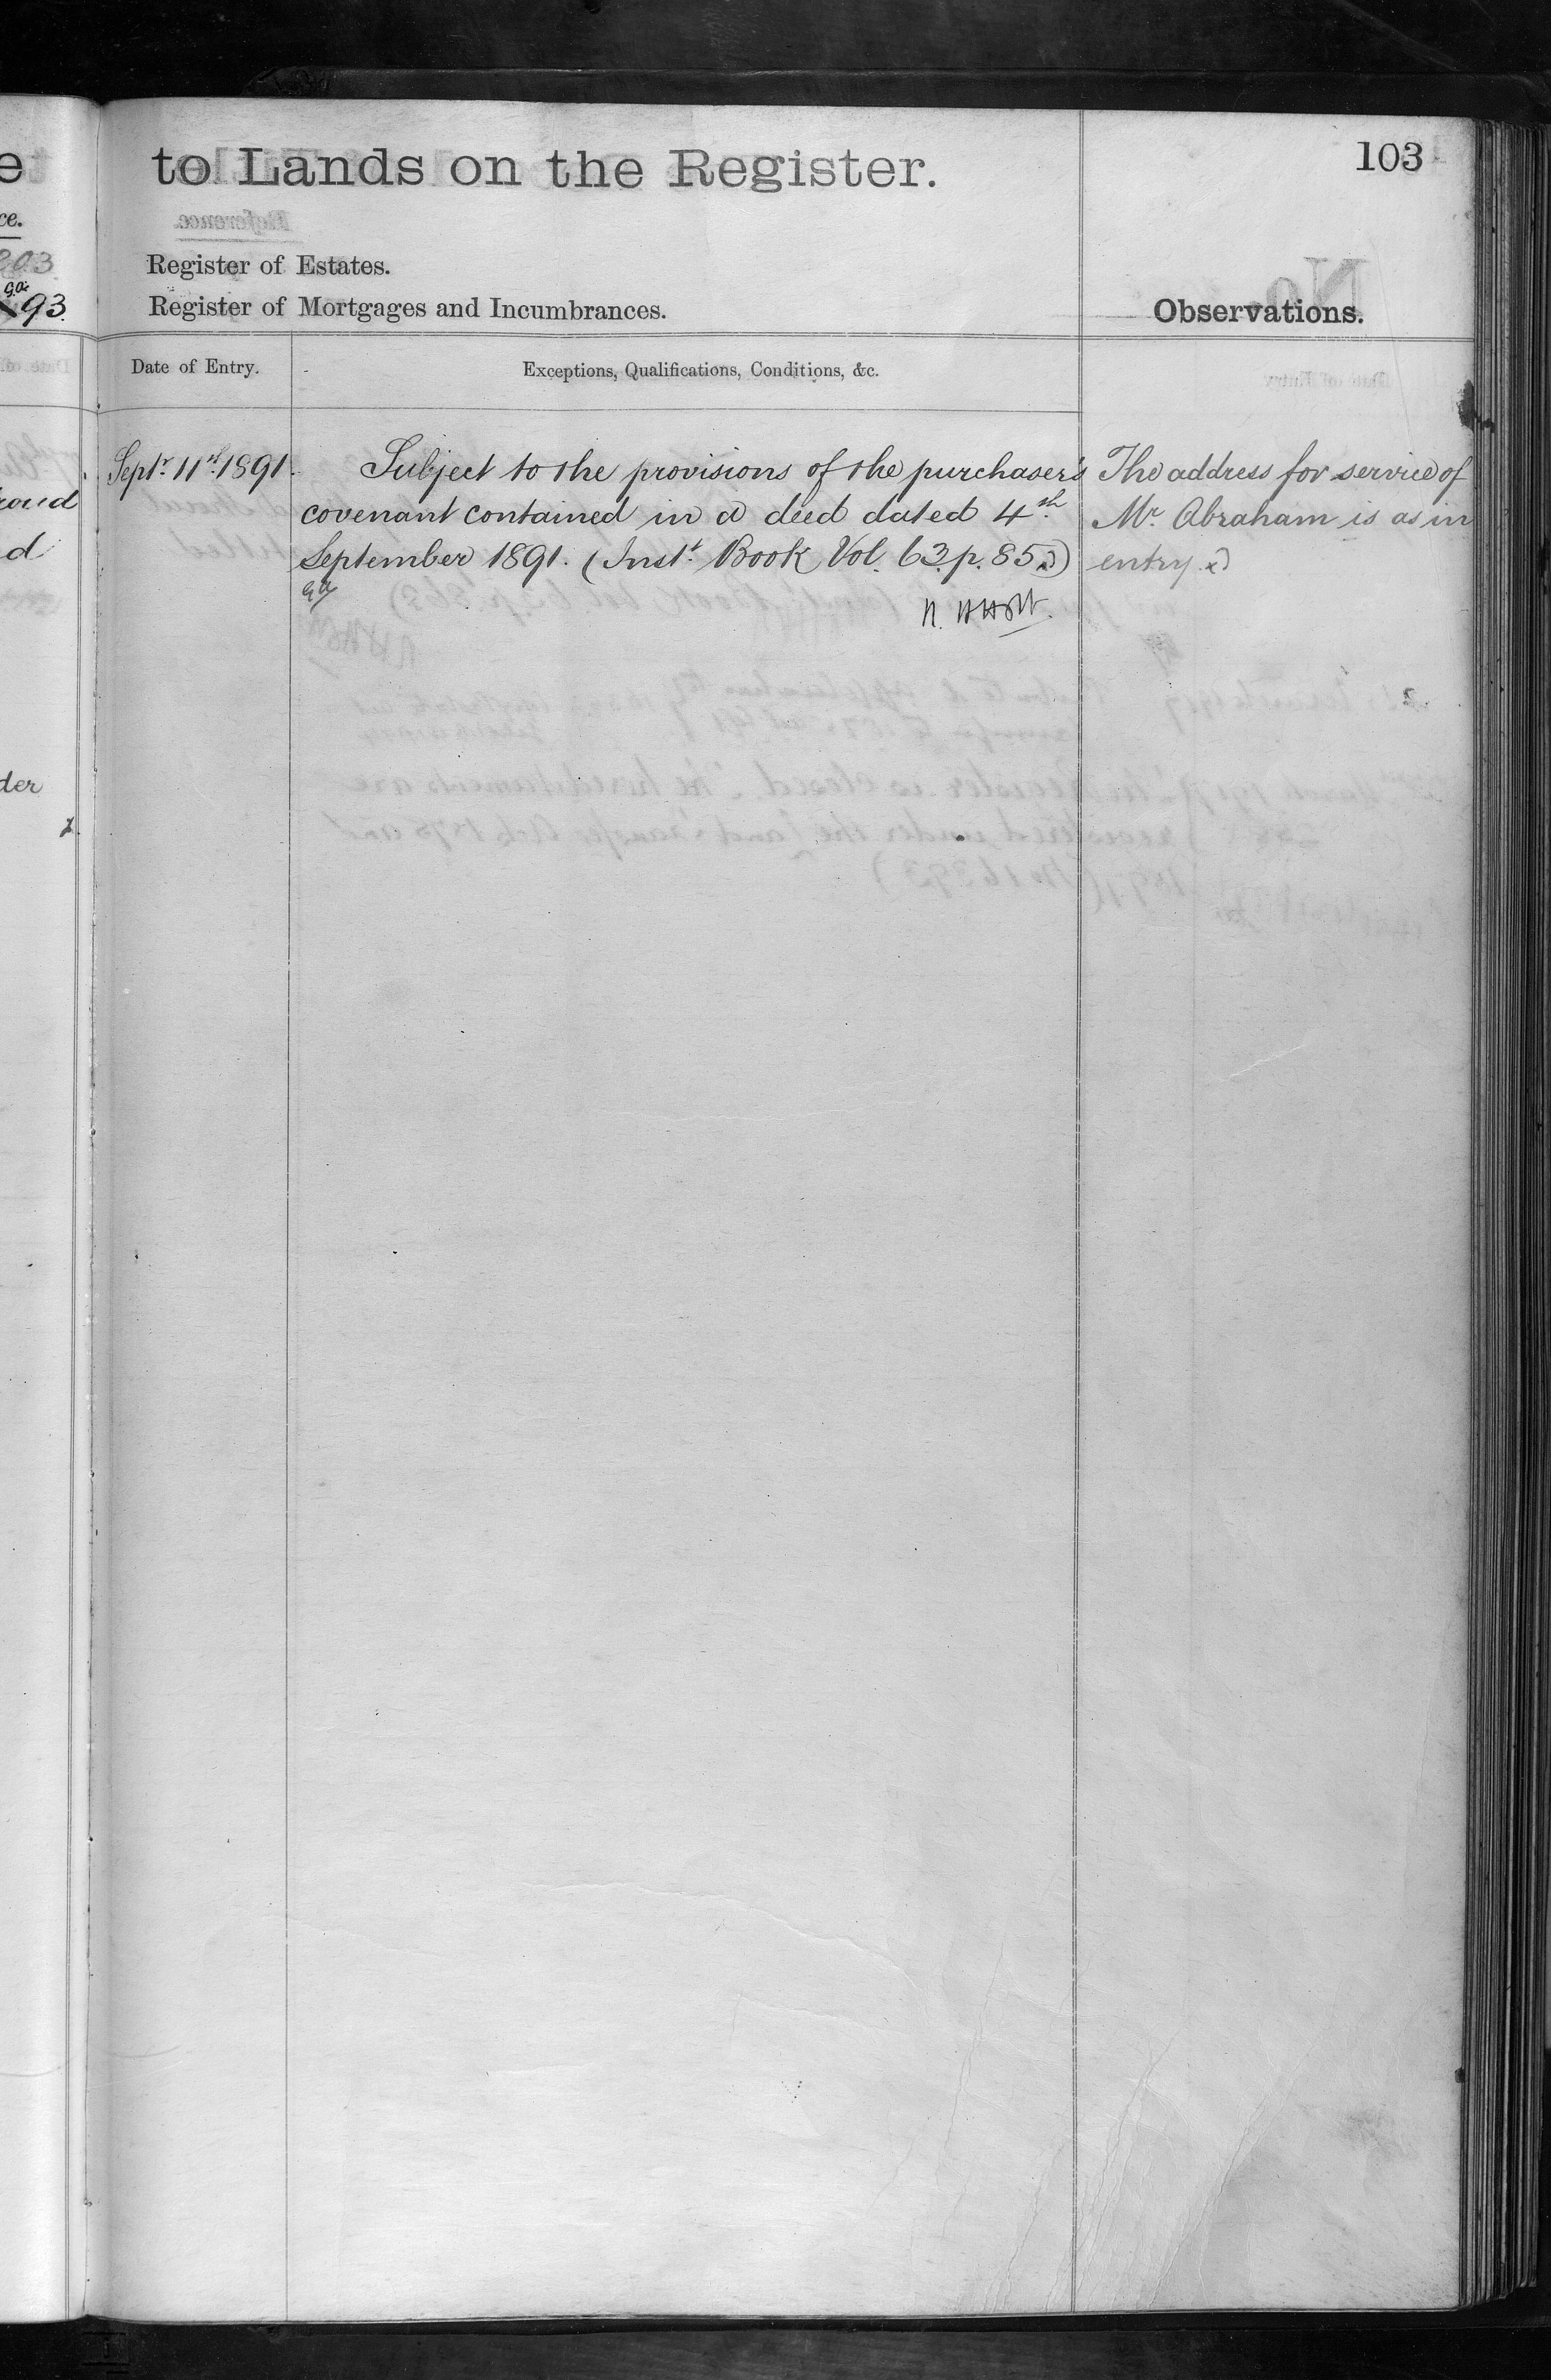 to Lands on the Register.
103
Register of Estates.
Register of Mortgages and Incumbrances.
Observations.
Date of Entry.
Exceptions, Qualifications, Conditions, &c.
Septr. 11th 1891. Subject to the provisions of the purchaser's
covenant contained in a deed dated 4th.
September 1891. (Inst. Book Vol. 63. p. 85.)
The address for service of
Mr. Abraham is as in
entry
e
ce.
203
93.
d
der